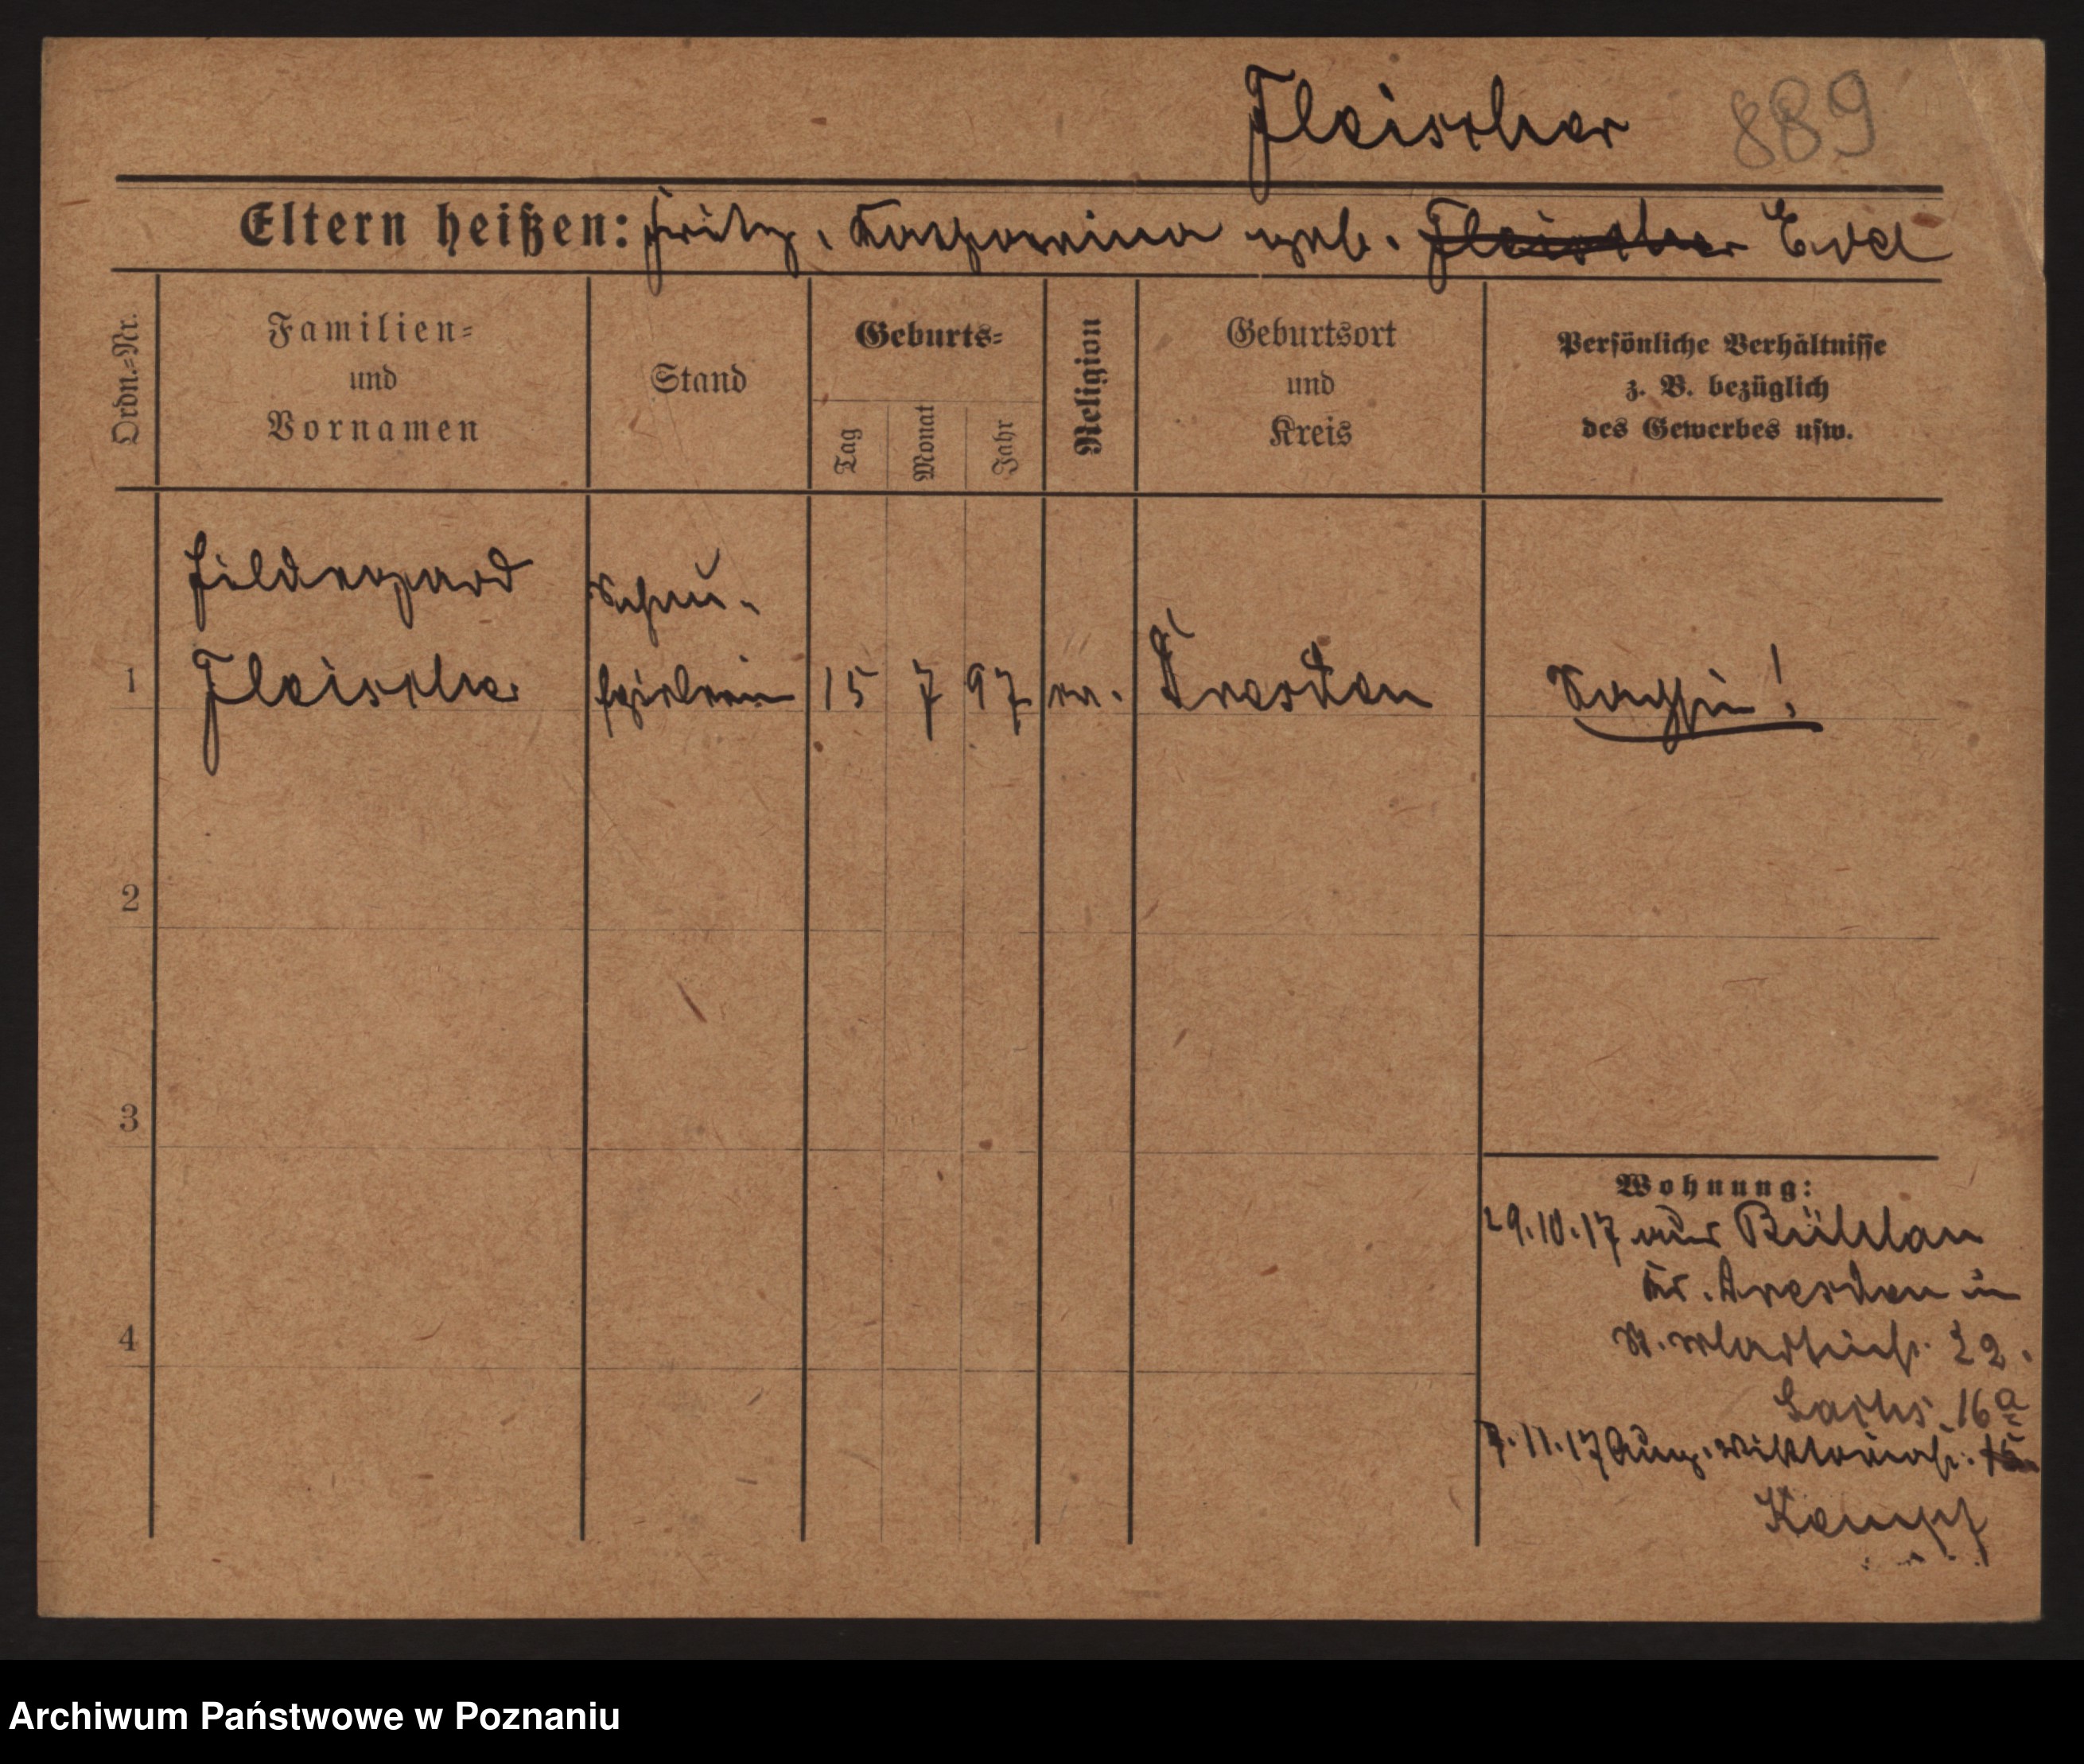 Fleischer 889
Eltern heißen: Fritz, Katharina geb. Fleischer Evel
Ordn.-Nr.
Familien-
und
Vornamen
Stand
Geburts-
Tag
Monat
Jahr
Religion
Geburtsort
und
Kreis
Persönliche Verhältnisse
z. B. bezüglich
des Gewerbes usw.
Hildegard
Fleischer
Schau-
spielerin
1
15 7 97 ev. Dresden
Sachsin!
2
3
4
Wohnung:
29.10.17 aus Bühlau
Kr. Dresden in
St. Martinstr. 22.
Sachs. 16a
7.11.17 Aug. Viktoriastr.
Kempf
Archiwum Państwowe w Poznaniu